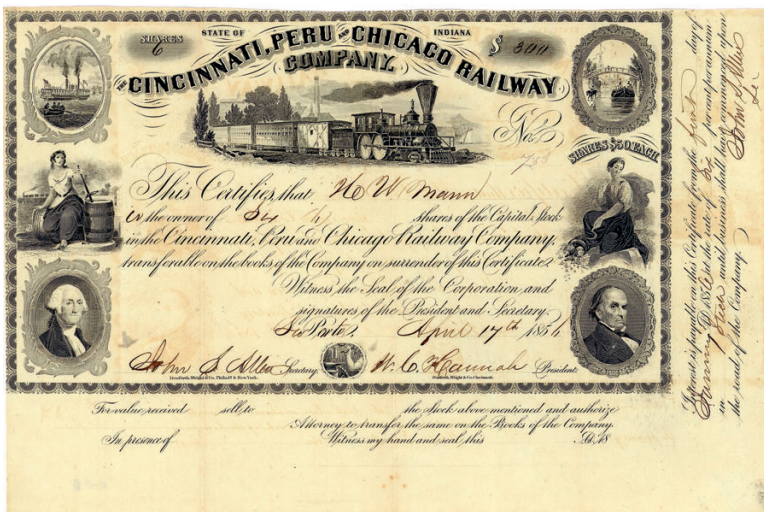 SHARES
6
STATE OF INDIANA
$ 300
THE CINCINNATI, PERU AND CHICAGO RAILWAY
COMPANY.
No. 753
SHARES $50 EACH
This Certifies, that H W Mann
is the owner of Six (6) shares of the Capital Stock
in the Cincinnati, Peru and Chicago Railway Company,
transferable on the books of the Company on surrender of this Certificate.
Witness, the Seal of the Corporation and
signatures of the President and Secretary.
La Porte, April 17th 1856
John S. Allen Secretary. W. C. Hannah President.
Danforth, Wright & Co. Philada & New York.
Danforth, Wright & Co. Cincinnati.
For value received sell to the Stock above mentioned and authorize
Attorney to transfer the same on the Books of the Company.
In presence of Witness my hand and seal this A.D. 18
Interest is payable on this Certificate from the first day of
January A.D. 1856 at the rate of Six per cent per annum
in Stock until business shall have commenced upon
the road of the Company. John S Allen